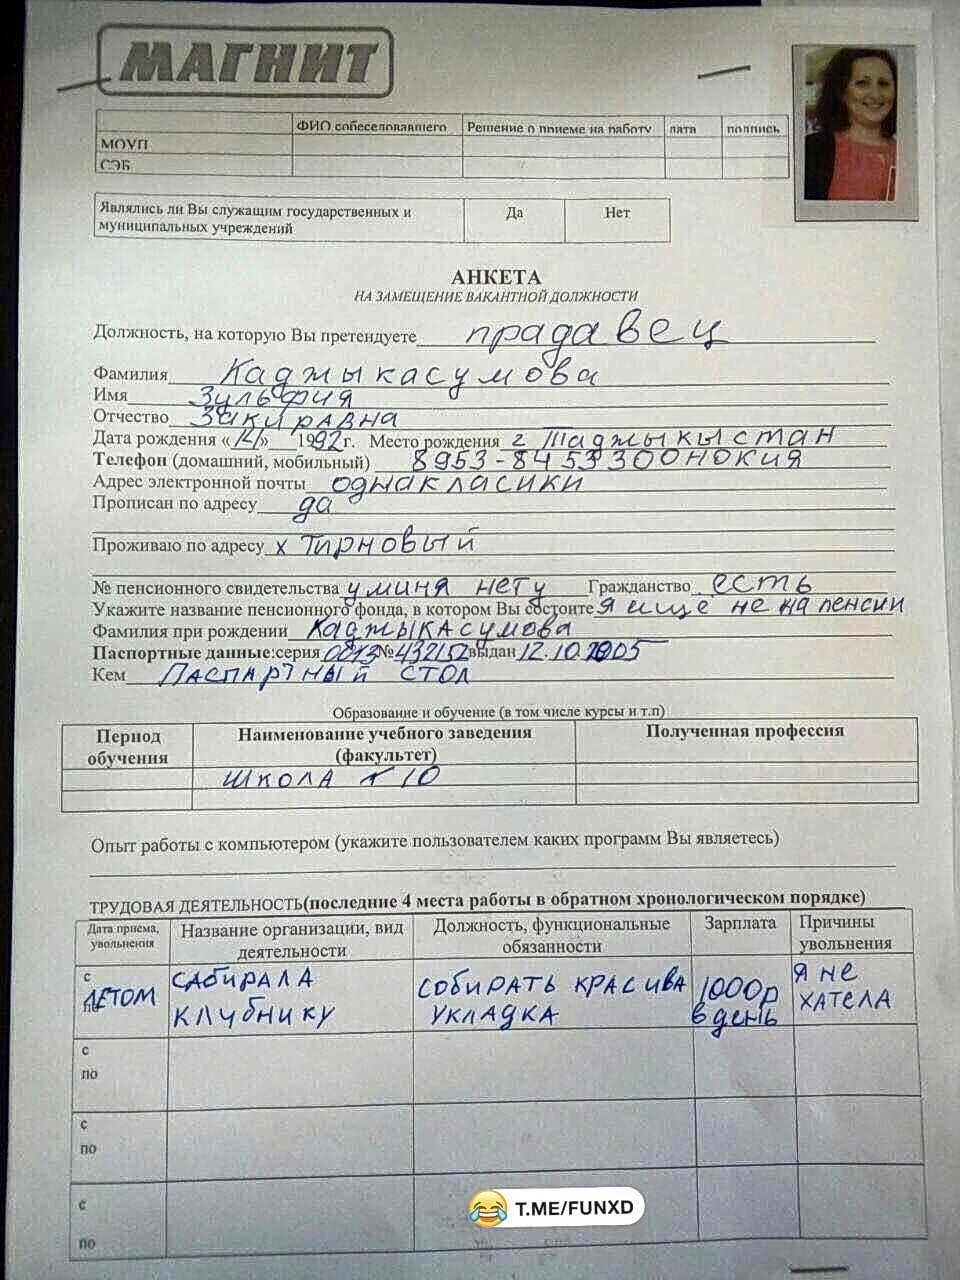 МАГНИТ
ФИО собеседовавшего Решение о приеме на работу дата подпись
МОУП
СЭБ
Являлись ли Вы служащим государственных и муниципальных учреждений Да Нет
АНКЕТА
НА ЗАМЕЩЕНИЕ ВАКАНТНОЙ ДОЛЖНОСТИ
Должность, на которую Вы претендуете прадавец
Фамилия Каджыкасумова
Имя Зульфия
Отчество Закиравна
Дата рождения «12» 1992г. Место рождения г Таджыкыстан
Телефон (домашний, мобильный) 8953-8453300нокия
Адрес электронной почты однакласики
Прописан по адресу да
Проживаю по адресу х Тирновый
№ пенсионного свидетельства у миня нету Гражданство есть
Укажите название пенсионного фонда, в котором Вы состоите я ище не на пенсии
Фамилия при рождении Каджыкасумова
Паспортные данные:серия 0013 № 432152 выдан 12.10.2005
Кем Паспартный стол
Образование и обучение (в том числе курсы и т.п)
Период обучения Наименование учебного заведения (факультет) Полученная профессия
школа 10
Опыт работы с компьютером (укажите пользователем каких программ Вы являетесь)
ТРУДОВАЯ ДЕЯТЕЛЬНОСТЬ(последние 4 места работы в обратном хронологическом порядке)
Дата приема, увольнения Название организации, вид деятельности Должность, функциональные обязанности Зарплата Причины увольнения
с САБИРАЛА СОБИРАТЬ КРАСИВА 1000р Я НЕ
по ЛЕТОМ КЛУБНИКУ УКЛАДКА в день ХАТЕЛА
с
по
с
по
с
по
T.ME/FUNXD